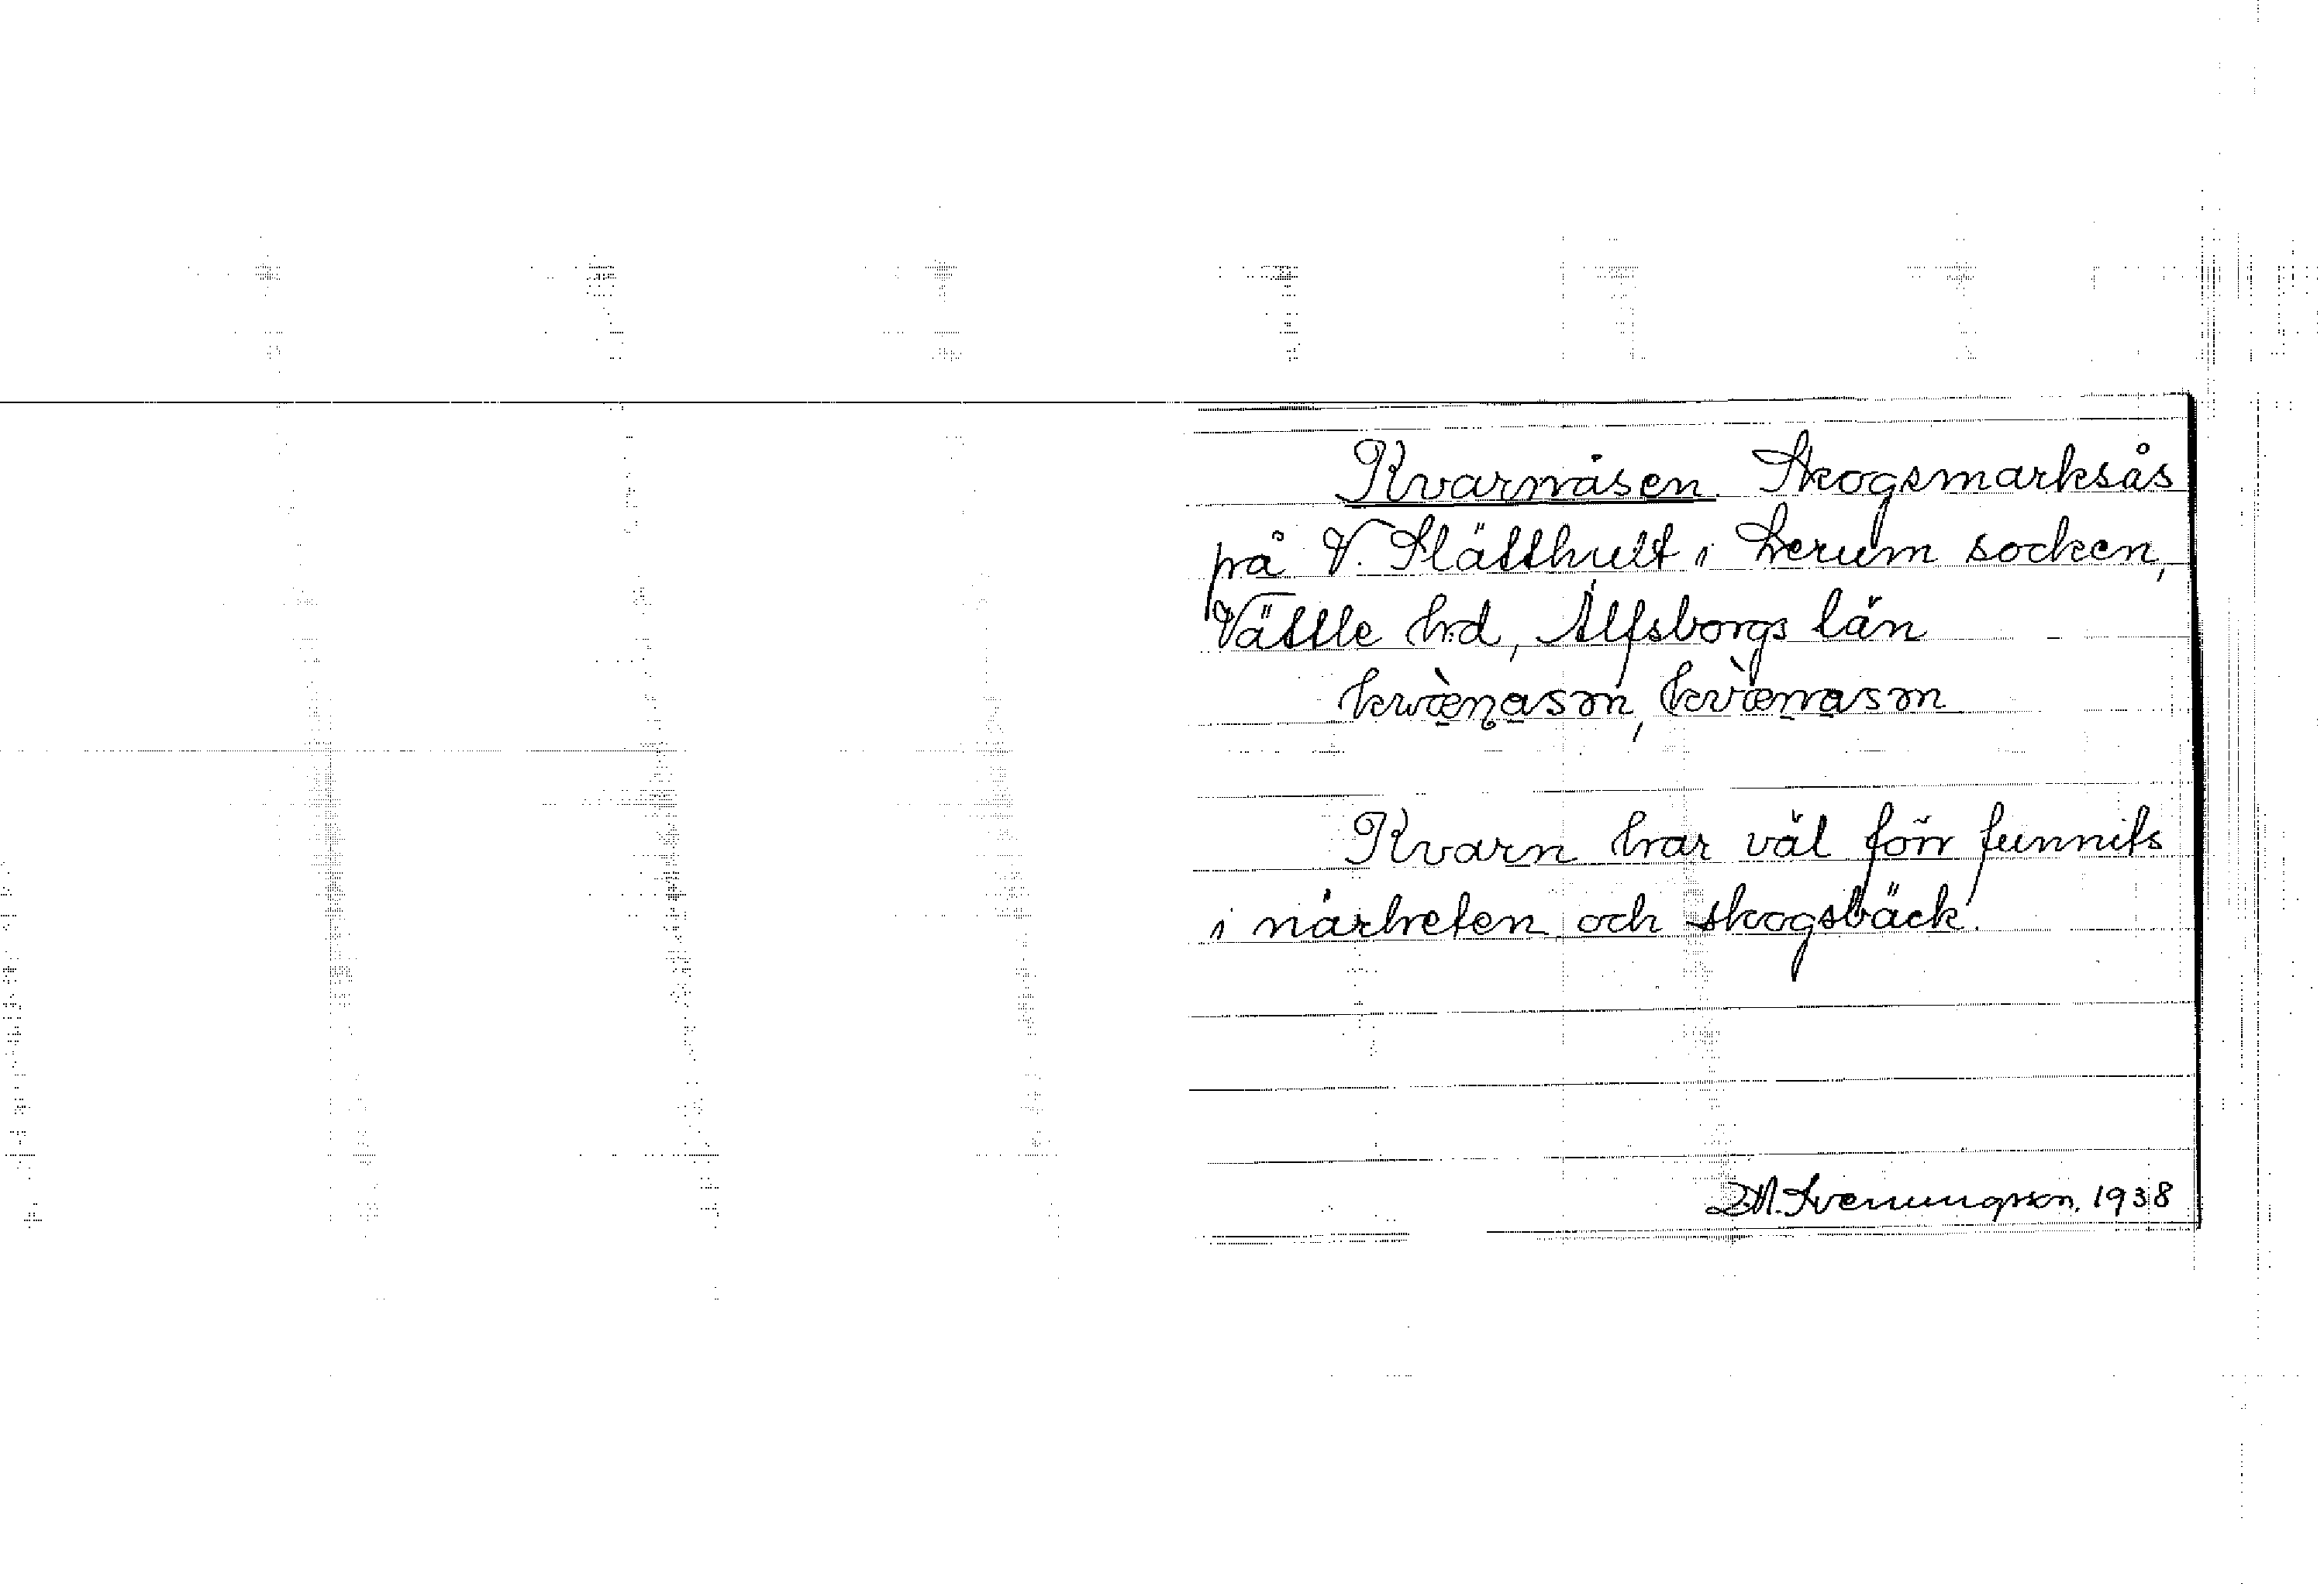 Kvarnåsen. Skogsmarksås
på V. Slätthult i Lerum socken,
Vättle hd, Älfsborgs län
Kvarn har väl förr funnits
i närheten och skogsbäck.
D.A. Svenungsson, 1938